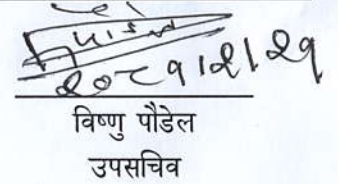 २०८१।२।२९
विष्णु पौडेल
उपसचिव